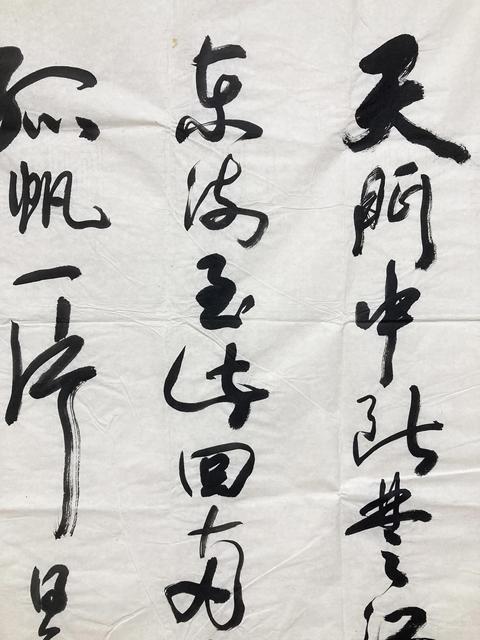 天門中断楚江
东流至此回两
孤帆一片日